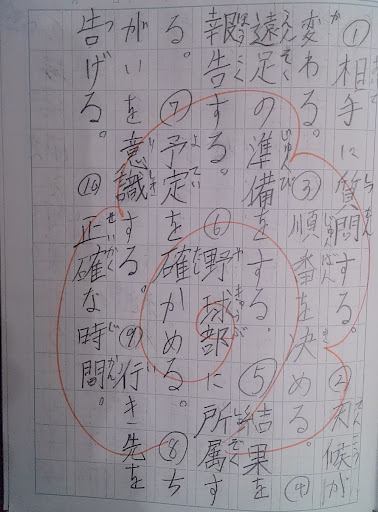 ①相手に質問する。②天候が
変わる。③順番を決める。④
遠足の準備をする。⑤結果を
報告する。⑥野球部に所属す
る。⑦予定を確かめる。⑧ち
がいを意識する。⑨行き先を
告げる。⑩正確な時間。